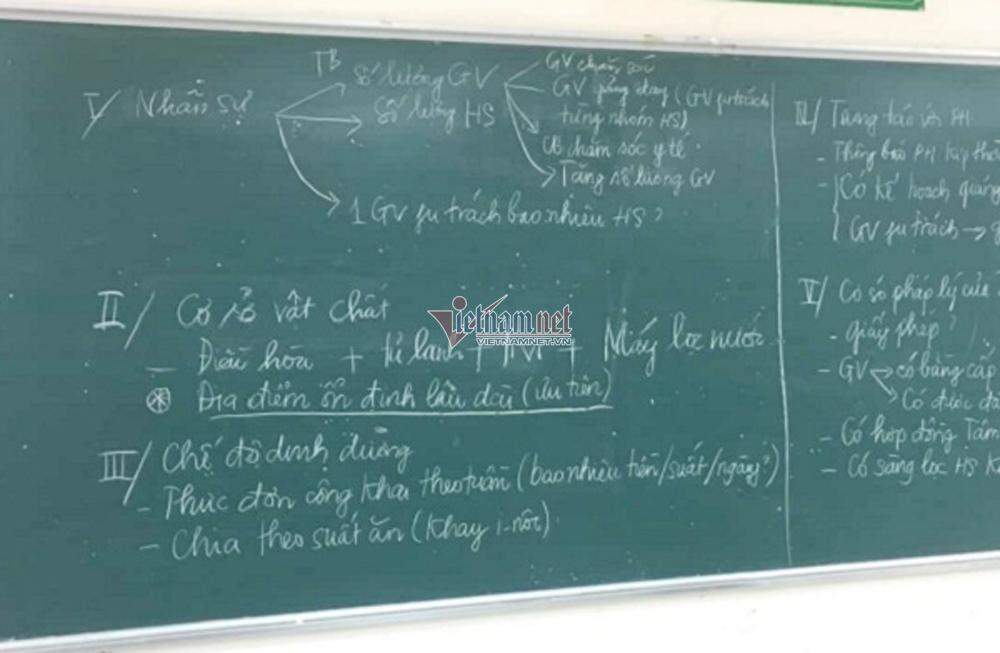 I/ Nhân sự
TB số lượng GV
số lượng HS
GV chăm sóc
GV giảng dạy (GV phụ trách
từng nhóm HS)
chăm sóc y tế
Tăng số lượng GV
1 GV phụ trách bao nhiêu HS?
II/ Cơ sở vật chất
- Điều hòa + tủ lạnh + Tivi + Máy lọc nước
* Địa điểm ổn định lâu dài (ưu tiên)
III/ Chế độ dinh dưỡng
- Thực đơn công khai theo tuần (bao nhiêu tiền/suất/ngày?)
- Chia theo suất ăn (khay i-nôc)
IV/ Tương tác với PH
- Thông báo PH kịp
- Có kế hoạch
GV phụ trách →
V/ Cơ sở pháp lý của
- giấy phép?
- GV → có bằng cấp
Có được
- Có hợp đồng
- Có sàng lọc HS
Vietnam.net
VIETNAMNET.VN